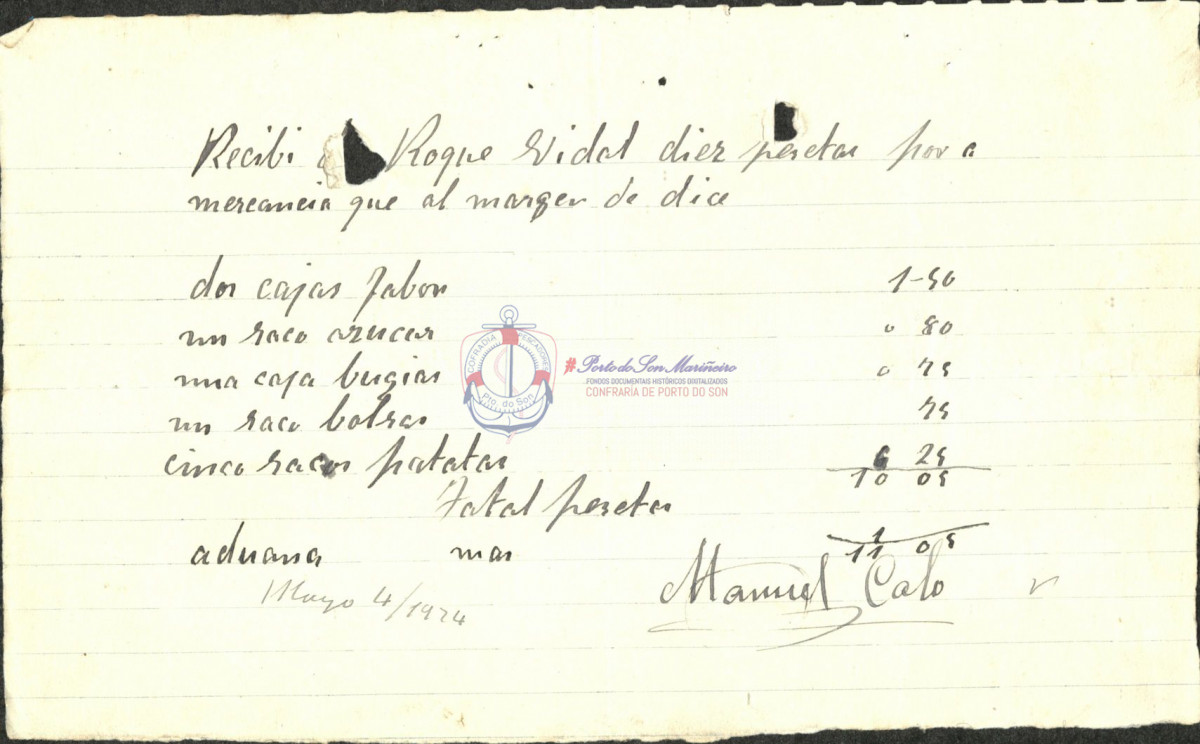 Recibi a Roque Vidal diez pesetas por a
mercancia que al margen de dice
dos cajas Jabon 1-50
un saco azucar 0 80
una caja bugias 0 75
un saco bolsas 75
cinco sacos patatas 6 25
10 05
Total pesetas
1
aduana mas 11 05
Mayo 4/1924
Manuel Calo
COFRADIA PESCADORES
Pto. do Son
#Porto do Son Mariñeiro
FONDOS DOCUMENTAIS HISTÓRICOS DIXITALIZADOS
CONFRARÍA DE PORTO DO SON